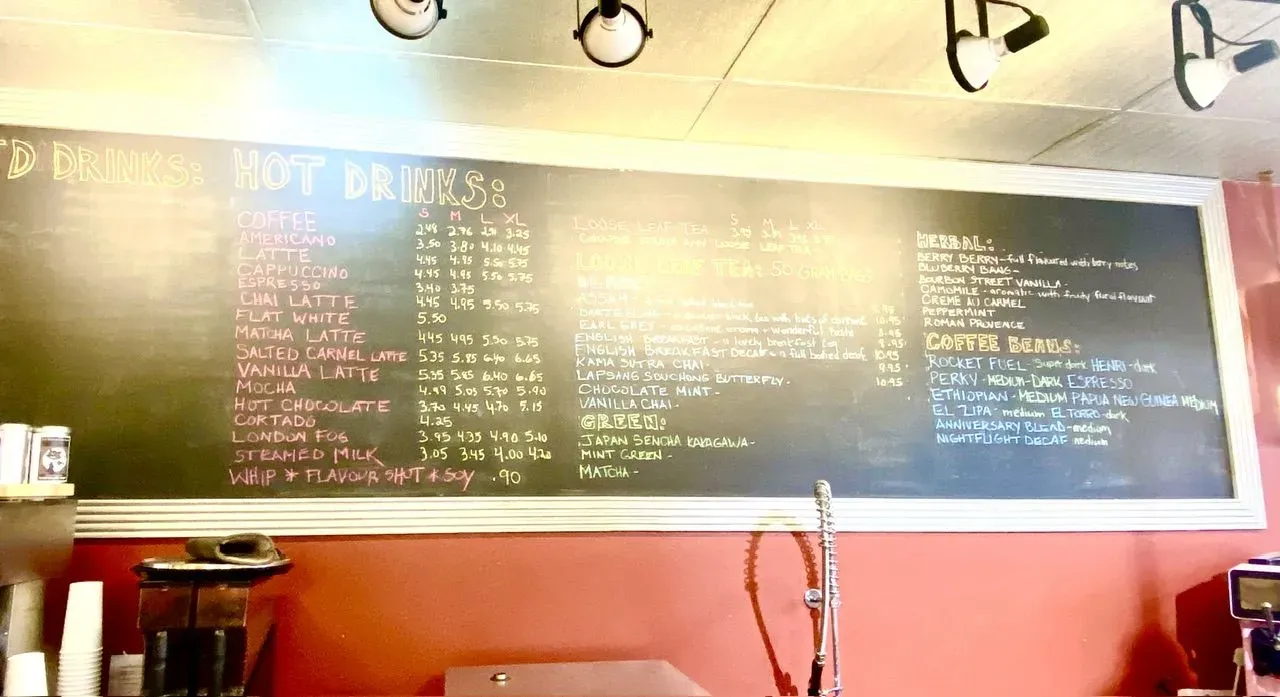 D DRINKS:
HOT DRINKS:
S M L XL
COFFEE 2.48 2.76 3.25
AMERICANO 3.50 3.80 4.10 4.45
LATTE 4.45 4.95 5.50 5.75
CAPPUCCINO 4.45 4.95 5.50 5.75
ESPRESSO 3.40 3.75
CHAI LATTE 4.45 4.95 5.50 5.75
FLAT WHITE 5.50
MATCHA LATTE 4.45 4.95 5.50 5.75
SALTED CARMEL LATTE 5.35 5.85 6.40 6.65
VANILLA LATTE 5.35 5.85 6.40 6.65
MOCHA 4.99 5.05 5.70 5.90
HOT CHOCOLATE 3.70 4.45 4.70 5.15
CORTADO 4.25
LONDON FOG 3.95 4.35 4.90 5.10
STEAMED MILK 3.05 3.45 4.00 4.20
WHIP * FLAVOUR SHOT * SOY .90
S M L XL
LOOSE LEAF TEA
LOOSE LEAF TEA: 50 GRAM BAGS
ASSAM -
EARL GREY - aroma - wonderful taste
ENGLISH BREAKFAST - a lively breakfast tea
ENGLISH BREAKFAST DECAF - a full bodied decaf 10.95
KAMA SUTRA CHAI - 9.95
LAPSANG SOUCHONG BUTTERFLY - 10.95
CHOCOLATE MINT -
VANILLA CHAI -
GREEN:
JAPAN SENCHA KAKAGAWA -
MINT GREEN -
MATCHA -
HERBAL:
BERRY BERRY - full flavoured with berry notes
BLUBERRY BANG -
BOURBON STREET VANILLA -
CAMOMILE - aromatic with fruity floral flavour
CREME AU CARMEL
PEPPERMINT
ROMAN PROVENCE
COFFEE BEANS:
ROCKET FUEL - Super dark HENRI - dark
PERKY - MEDIUM-DARK ESPRESSO
ETHIOPIAN - MEDIUM PAPUA NEW GUINEA MEDIUM
EL ZIPA - medium EL TORRO - dark
ANNIVERSARY BLEND - medium
NIGHTFLIGHT DECAF medium